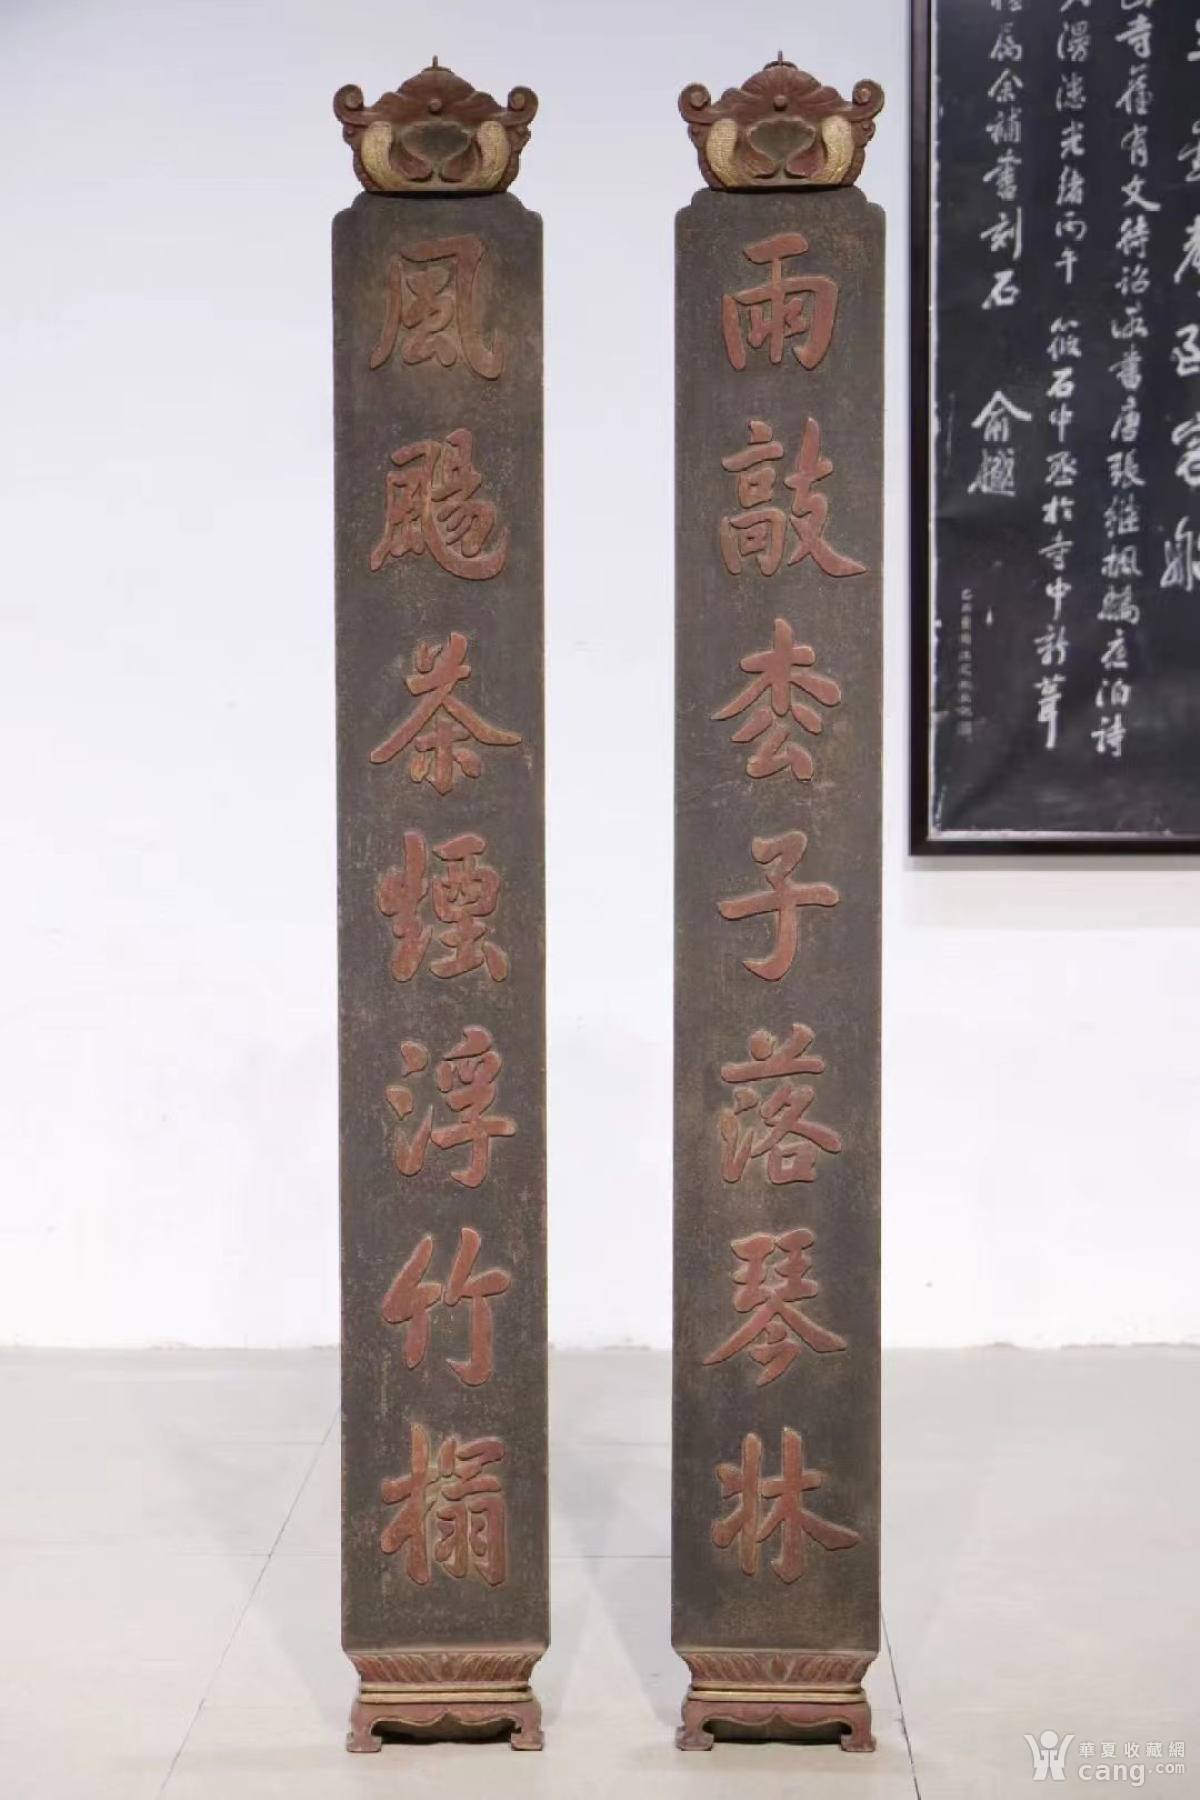 聲到客船
山寺舊有文待詔所書唐張繼楓橋夜泊詩
久漫漶光緒丙午筱石中丞於寺中新葺
楹屬余補書刻石 俞樾
雨敲枩子落琴牀
風颺茶煙浮竹榻
華夏收藏網
cang.com